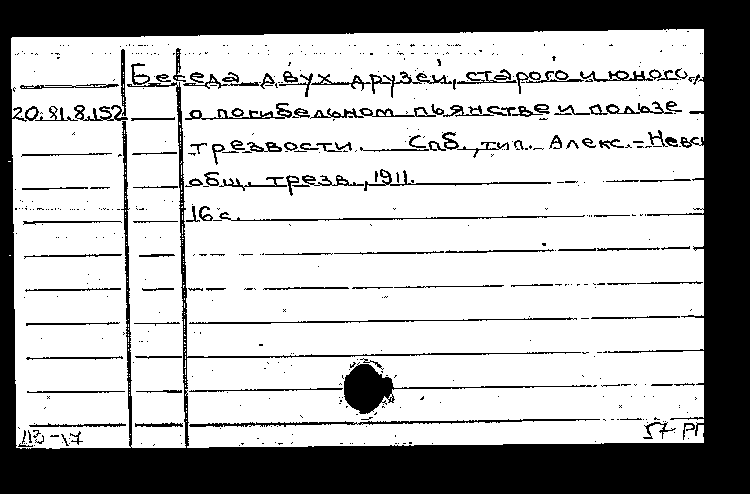 Беседа двух друзей, старого и юного,
20.81.8.152 о погибельном пьянстве и пользе
трезвости. Спб., тип. Алекс.-Невс
общ. трезв., 1911.
16 с.
113-17 57 РП